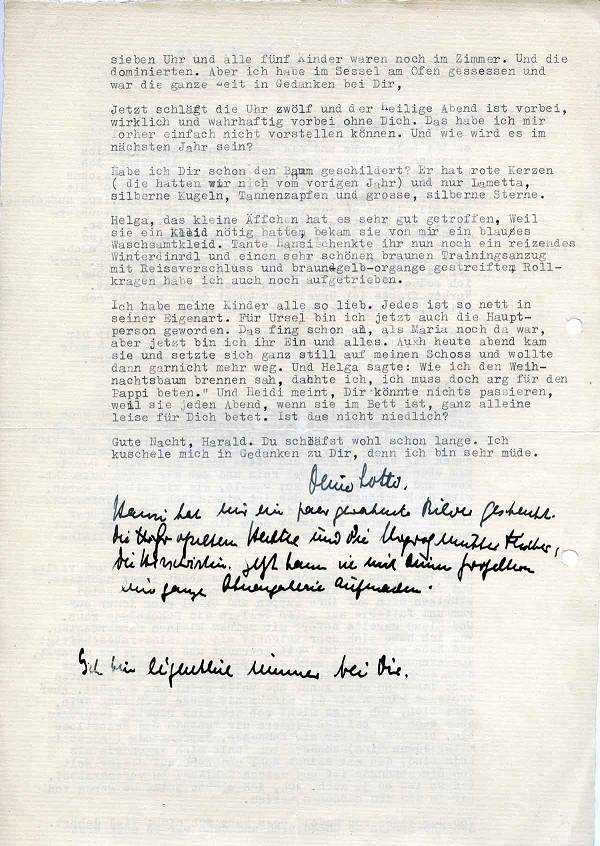 sieben Uhr und alle fünf Kinder waren noch im Zimmer. Und die
dominierten. Aber ich habe im Sessel am Ofen gessessen und
war die ganze Zeit in Gedanken bei Dir,
Jetzt schlägt die Uhr zwölf und der Heilige Abend ist vorbei,
wirklich und wahrhaftig vorbei ohne Dich. Das habe ich mir
vorher einfach nicht vorstellen können. Und wie wird es im
nächsten Jahr sein?
Habe ich Dir schon den Baum geschildert? Er hat rote Kerzen
( die hatten wir nich vom vorigen Jahr) und nur Lametta,
silberne Kugeln, Tannenzapfen und grosse, silberne Sterne.
Helga, das kleine Äffchen hat es sehr gut getroffen, Weil
sie ein Kleid nötig hatte, bekam sie von mir ein blaues
Waschsamtkleid. Tante Hansi schenkte ihr nun noch ein reizendes
Winterdinrdl und einen sehr schönen braunen Trainingsanzug
mit Reissverschluss und braun-gelb-organge gestreiften Roll-
kragen habe ich auch noch aufgetrieben.
Ich habe meine Kinder alle so lieb. Jedes ist so nett in
seiner Eigenart. Für Ursel bin ich jetzt auch die Haupt-
person geworden. Das fing schon an, als Maria noch da war,
aber jetzt bin ich ihr Ein und alles. Auxh heute abend kam
sie und setzte sich ganz still auf meinen Schoss und wollte
dann garnicht mehr weg. Und Helga sagte: Wie ich den Weih-
nachtsbaum brennen sah, dachte ich, ich muss doch arg für den
Pappi beten." Und Heidi meint, Dir könnte nichts passieren,
weil sie jeden Abend, wenn sie im Bett ist, ganz alleine
leise für Dich betet. Ist das nicht niedlich?
Gute Nacht, Harald. Du schläfst wohl schon lange. Ich
kuschele mich in Gedanken zu Dir, denn ich bin sehr müde.
Deine Lotte.
Hansi hat mir ein paar gerahmte Bilder geschenkt.
Die und die
Die Jetzt kann ich mit
eine ganze Ahnengalerie aufmachen.
Ich bin eigentlich immer bei Dir.